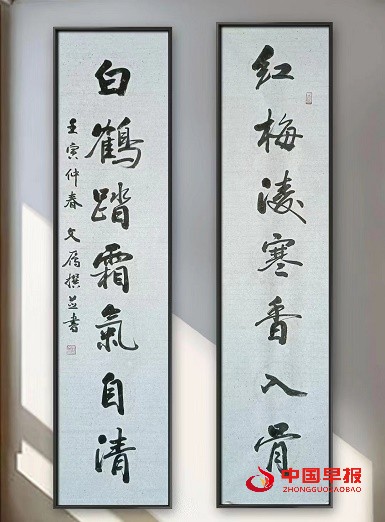 紅梅凌寒香入骨
白鶴踏霜氣自清
壬寅仲春 文 撰並書
中国早报
ZHONGGUOZAOBAO